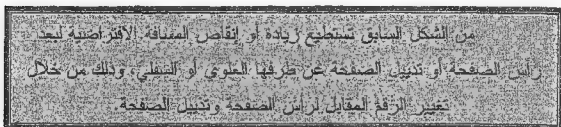 من الشكل السابق تستطيع زيادة أو إنقاص المسافة الافتراضية لبعد
رأس الصفحة أو تذييل الصفحة عن طرفها العلوي أو السفلي، وذلك من خلال
تغيير الرقم المقابل لرأس الصفحة وتذييل الصفحة.